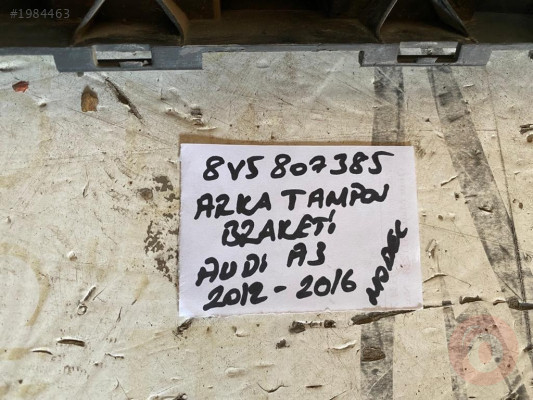 #1984463
8V5 807385
ARKA TAMPON
BRAKETİ
AUDI A3
2012-2016
MODEL